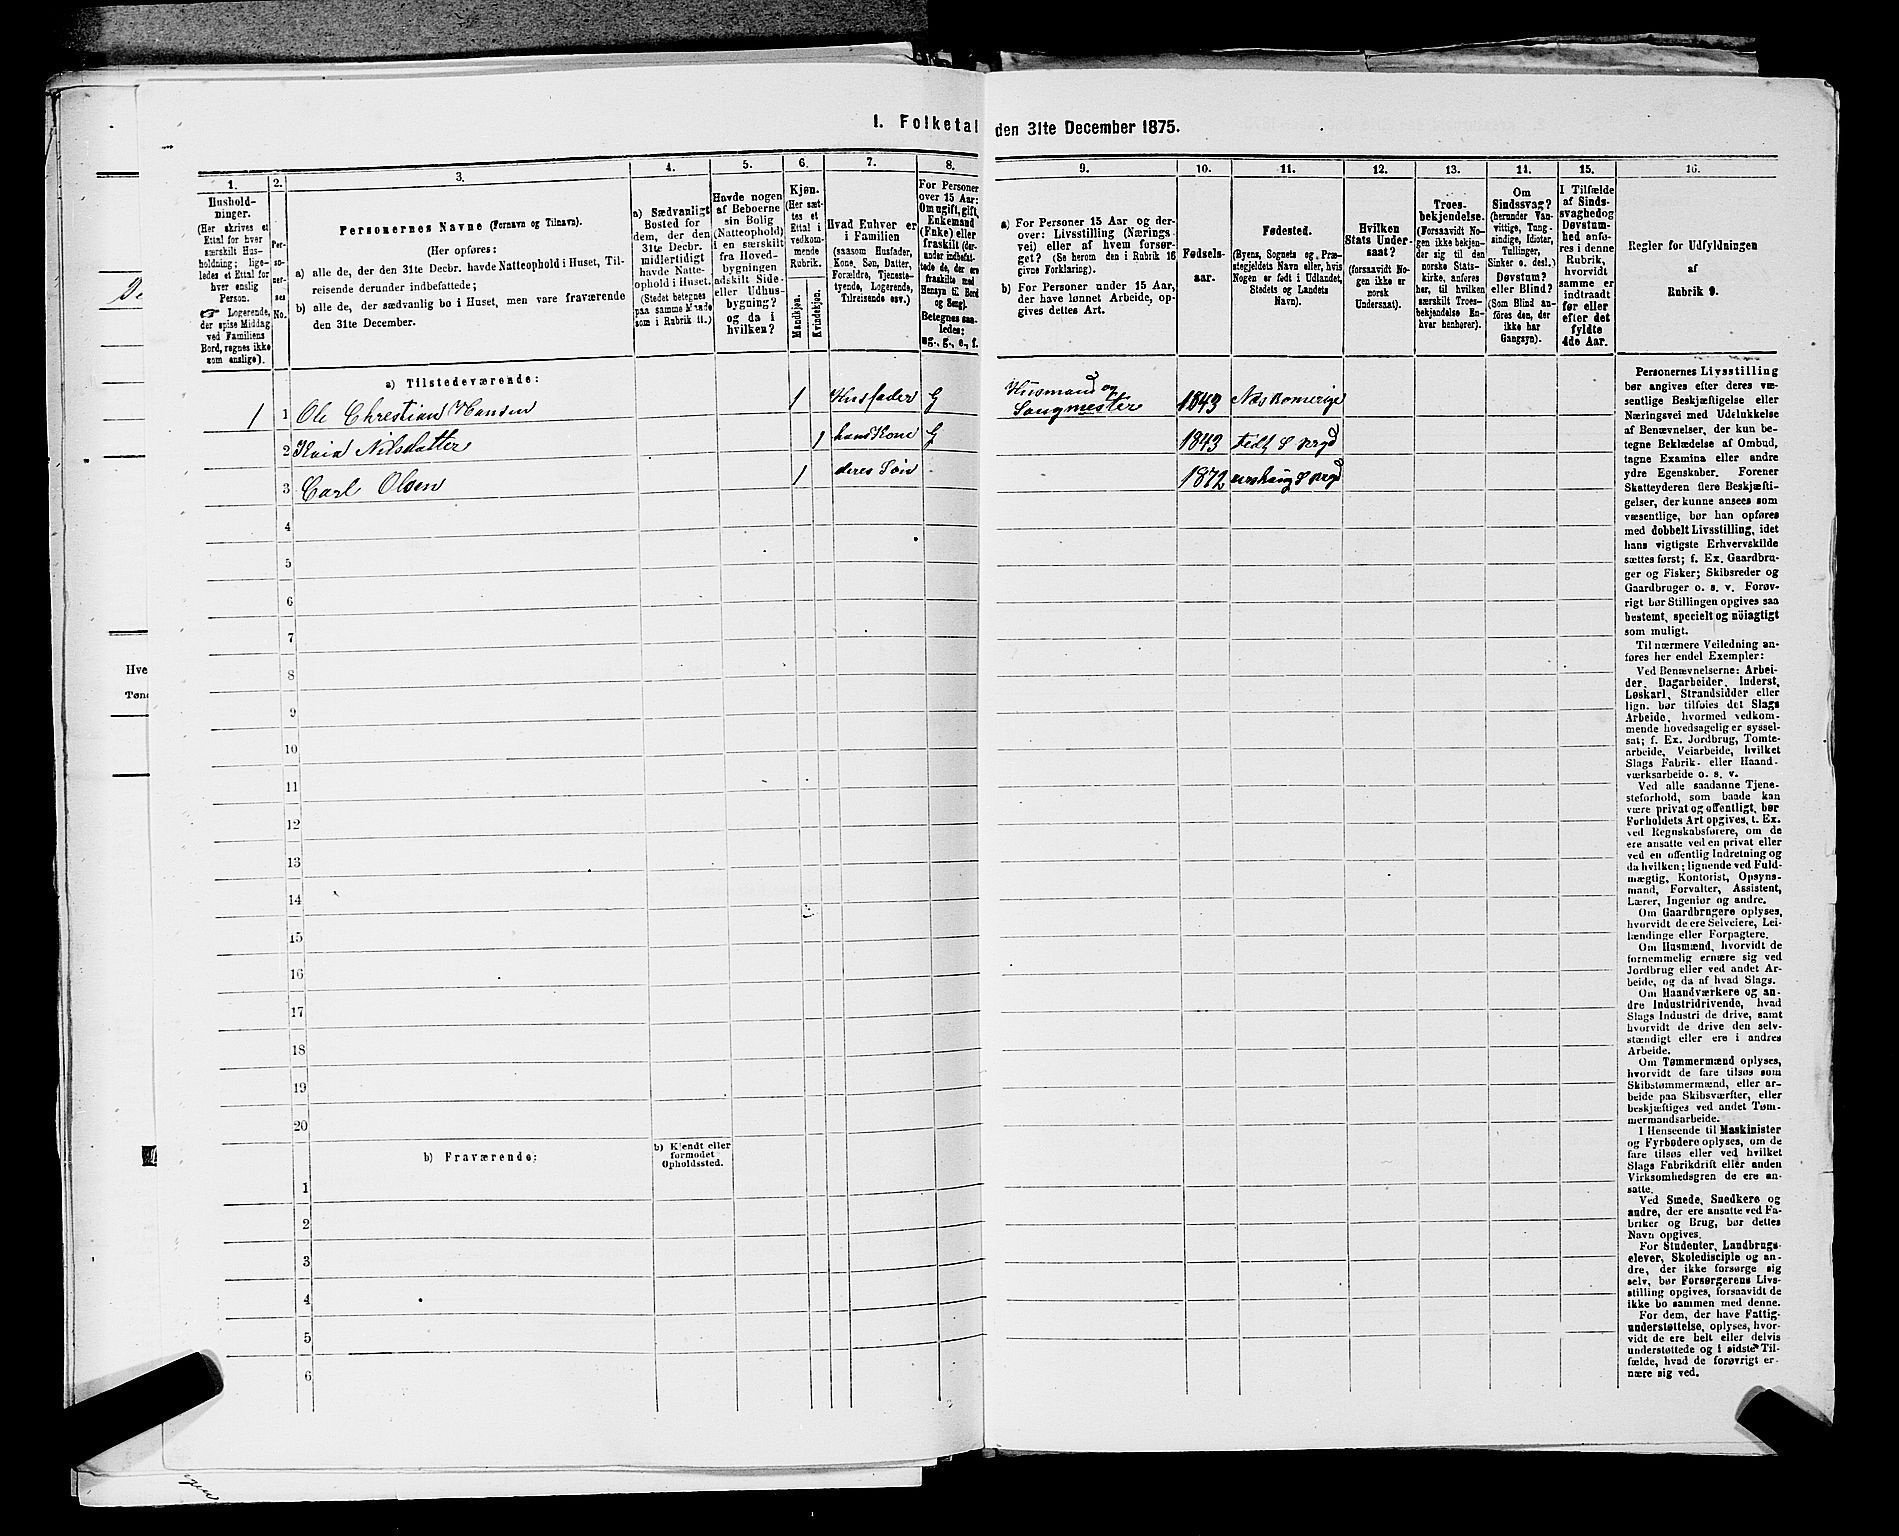 I. Folketal den 31te December 1875.
1.
Hushold-
ninger.
(Her skrives et
Ettal for hver
særskilt Hus-
holdning; lige-
ledes et Ettal for
hver enslig
Person.
☞ Logerende,
der spise Middag
ved Familiens
Bord, regnes ikke
som enslige).
2.
Per-
so-
ner-
nes
No.
3.
Personernes Navne (Fornavn og Tilnavn).
(Her opføres:
a) alle de, der den 31te Decbr. havde Natteophold i Huset, Til-
reisende derunder indbefattede;
b) alle de, der sædvanlig bo i Huset, men vare fraværende
den 31te December.
4.
a) Sædvanligt
Bosted for
dem, der den
31te Decbr.
midlertidigt
havde Natte-
ophold i Huset.
(Stedet betegnes
paa samme Maade
som i Rubrik 11.)
5.
Havde nogen
af Beboerne
sin Bolig
(Natteophold)
i en særskilt
fra Hoved-
bygningen
adskilt Side-
eller Udhus-
bygning?
og da i
hvilken?
6.
Kjøn.
(Her sæt-
tes et
Ettal i
vedkom-
mende
Rubrik.
Mandkjøn.
Kvindekjøn.
7.
Hvad Enhver er
i Familien
(saasom Husfader,
Kone, Søn, Datter,
Forældre, Tjeneste-
tyende, Logerende,
Tilreisende osv.)
8.
For Personer
over 15 Aar:
Om ugift, gift,
Enkemand
(Enke) eller
fraskilt (der-
under indbefat-
tede de, der ere
fraskilte med
Hensyn til Bord
og Seng).
Betegnes saa-
ledes:
ug., g., e., f.
9.
a) For Personer 15 Aar og der-
over: Livsstilling (Nærings-
vei) eller af hvem forsør-
get? (Se herom den i Rubrik 16
givne Forklaring).
b) For Personer under 15 Aar,
der have lønnet Arbeide, op-
gives dettes Art.
10.
Fødsels-
aar.
11.
Fødested.
(Byens, Sognets og Præ-
stegjeldets Navn eller, hvis
Nogen er født i Udlandet,
Stedets og Landets
Navn).
12.
Hvilken
Stats Under-
saat?
(forsaavidt No-
gen ikke er
norsk
Undersaat).
13.
Troes-
bekjendelse.
(Forsaavidt No-
gen ikke bekjen-
der sig til den
norske Stats-
kirke, anføres
her, til hvilken
særskilt Troes-
bekjendelse En-
hver henhører).
14.
Om
Sindssvag?
(herunder Van-
vittige, Tung-
sindige, Idioter,
Tullinger,
Sinker o. desl.)
Døvstum?
eller Blind?
(Som Blind an-
føres den, der
ikke har
Gangsyn).
15.
I Tilfælde
af Sinds-
svaghed og
Døvstum-
hed anfø-
res i denne
Rubrik,
hvorvidt
samme er
indtraadt
før eller
efter det
fyldte
4de Aar.
16.
Regler for Udfyldningen
af
Rubrik 9.
a) Tilstedeværende:
1 1 Ole Chrestian Hansen 1 Husfader G Husmand og
Saugmester 1843 Næs Romerige
2 Karin Nilsdatter 1 hans Kone G 1843
3 Carl Olsen 1 deres Søn 1872
4
5
6
7
8
9
10
11
12
13
14
15
16
17
18
19
20
b) Fraværende:
b) Kjendt eller
formodet
Opholdssted.
1
2
3
4
5
6
Personernes Livsstilling
bør angives efter deres væ-
sentlige Beskjæftigelse eller
Næringsvei med Udelukkelse
af Benævnelser, der kun be-
tegne Beklædelse af Ombud,
tagne Examina eller andre
ydre Egenskaber. Forener
Skatteyderen flere Beskjæfti-
gelser, der kunne ansees som
væsentlige, bør han opføres
med dobbelt Livsstilling, idet
hans vigtigste Erhvervskilde
sættes først; f. Ex. Gaardbru-
ger og Fisker; Skibsreder og
Gaardbruger o. s. v. Forøv-
rigt bør Stillingen opgives saa
bestemt, specielt og nöiagtigt
som muligt.
Til nærmere Veiledning an-
føres her endel Exempler:
Ved Benævnelserne: Arbei-
der, Dagarbeider, Inderst,
Løskarl, Strandsidder eller
lign. bør tilføies det Slags
Arbeide, hvormed vedkom-
mende hovedsagelig er syssel-
sat; f. Ex. Jordbrug, Tomte-
arbeide, Veiarbeide, hvilket
Slags Fabrik- eller Haand-
værksarbeide o. s. v.
Ved alle saadanne Tjene-
steforhold, som baade kan
være privat og offentligt, bør
Forholdets Art opgives, t. Ex.
ved Regnskabsførere, om de
ere ansatte ved en privat eller
ved en offentlig Indretning og
da hvilken; lignende ved Fuld-
mægtig, Kontorist, Opsyns-
mand, Forvalter, Assistent,
Lærer, Ingeniør og andre.
Om Gaardbrugere oplyses,
hvorvidt de ere Selveiere, Lei-
lændinge eller Forpagtere.
Om Husmænd, hvorvidt de
fornemmelig ernære sig ved
Jordbrug eller ved andet Ar-
beide, og da af hvad Slags.
Om Haandværkere og an-
dre Industridrivende, hvad
Slags Industri de drive, samt
hvorvidt de drive den selv-
stændigt eller ere i andres
Arbeide.
Om Tømmermænd oplyses,
hvorvidt de fare tilsøs som
Skibstømmermænd, eller ar-
beide paa Skibsværfter, eller
beskjæftiges ved andet Tøm-
mermandsarbeide.
I Henseende til Maskinister
og Fyrbødere oplyses, om de
fare tilsøs eller ved hvilket
Slags Fabrikdrift eller anden
Virksomhedsgren de ere an-
satte.
Ved Smede, Snedkere og
andre, der ere ansatte ved Fa-
briker og Brug, bør dettes
Navn opgives.
For Studenter, Landbrugs-
elever, Skoledisciple og an-
dre, der ikke forsørge sig
selv, bør Forsørgerens Livs-
stilling opgives, forsaavidt de
ikke bo sammen med denne.
For dem, der have Fattig-
understøttelse, oplyses, hvor-
vidt de ere helt eller delvis
understøttede og i sidste Til-
fælde, hvad de forøvrigt er-
nære sig ved.
Hve
Tønd